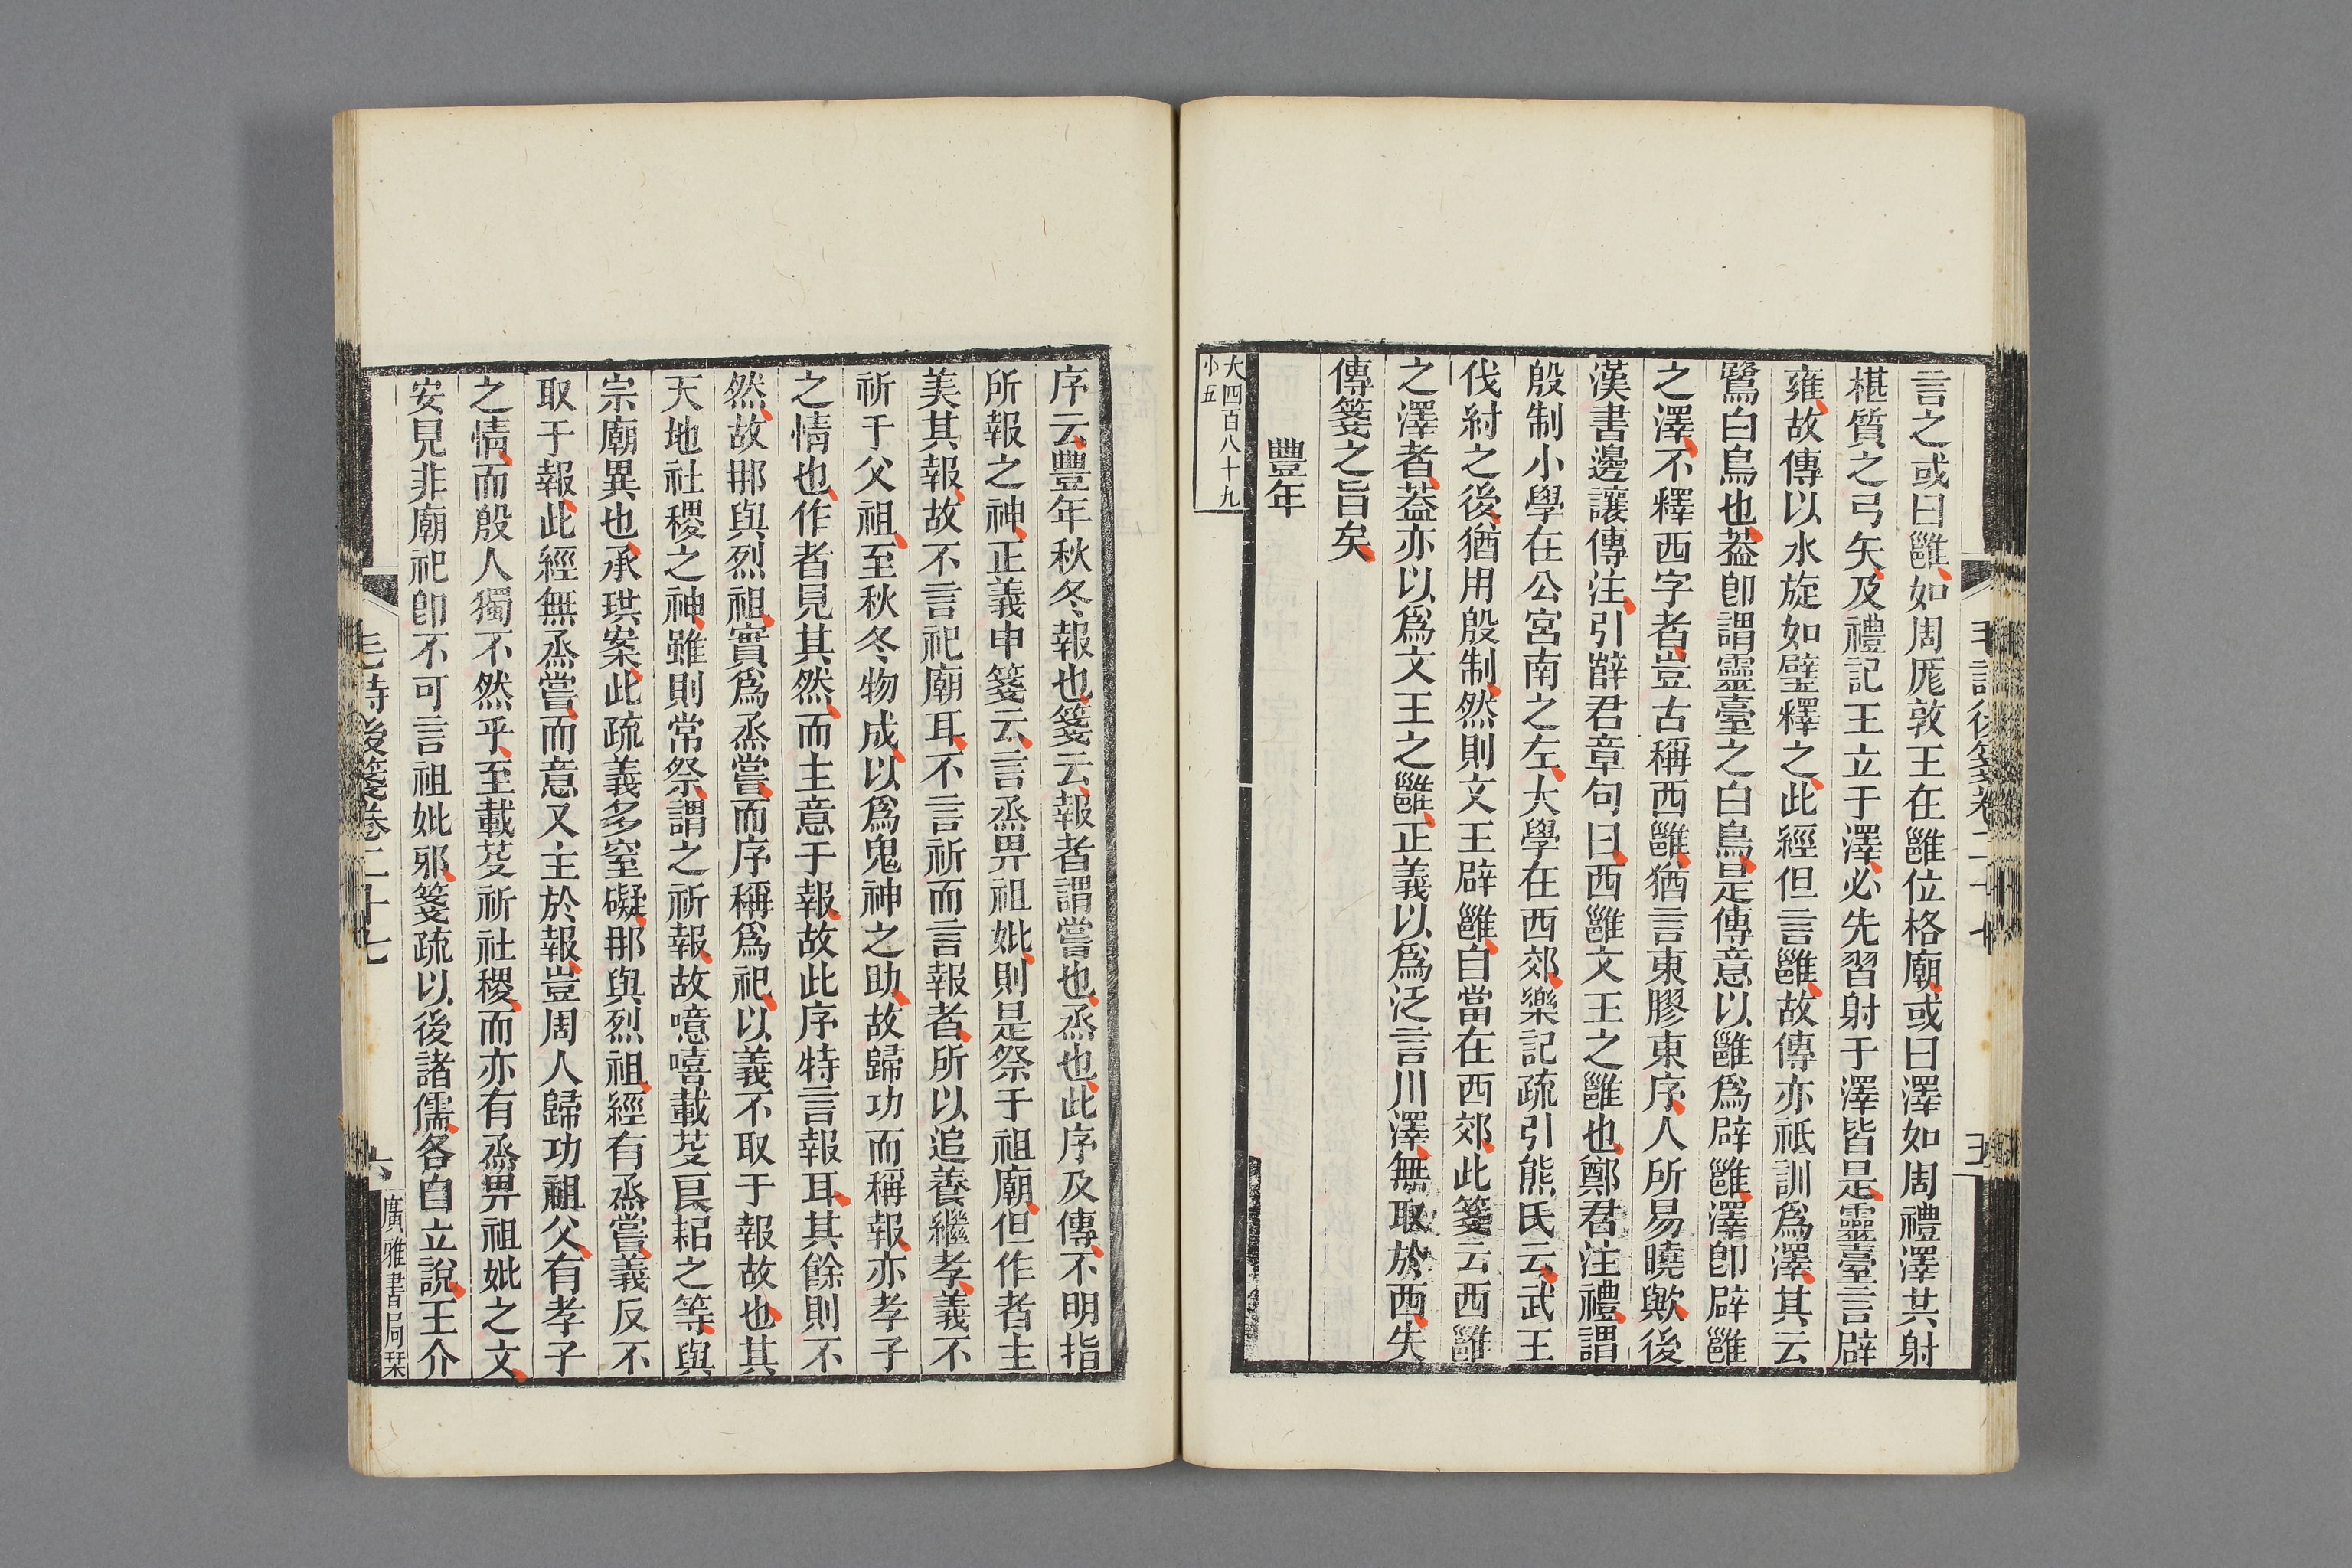 言之或曰雝如周厖敦王在雝位格廟或曰澤如周禮澤共射
椹質之弓矢及禮記王立于澤必先習射于澤皆是靈臺言辟
雍故傳以水旋如璧釋之此經但言雝故傳亦祗訓爲澤其云
鷺白鳥也葢卽謂靈臺之白鳥是傳意以雝爲辟雝澤卽辟雝
之澤不釋西字者豈古稱西雝猶言東膠東序人所易曉歟後
漢書邊讓傳注引辥君章句曰西雝文王之雝也鄭君注禮謂
殷制小學在公宮南之左大學在西郊樂記疏引熊氏云武王
伐紂之後猶用殷制然則文王辟雝自當在西郊此箋云西雝
之澤者葢亦以爲文王之雝正義以爲泛言川澤無取於西失
傳箋之旨矣
豐年
大四百八十九
小五
序云豐年秋冬報也箋云報者謂嘗也烝也此序及傳不明指
所報之神正義申箋云言烝畀祖妣則是祭于祖廟但作者主
美其報故不言祀廟耳不言祈而言報者所以追養繼孝義不
祈于父祖至秋冬物成以爲鬼神之助故歸功而稱報亦孝子
之情也作者見其然而主意于報故此序特言報耳其餘則不
然故那與烈祖實爲烝嘗而序稱爲祀以義不取于報故也其
天地社稷之神雖則常祭謂之祈報故噫嘻載芟良耜之等與
宗廟異也承珙案此疏義多窒礙那與烈祖經有烝嘗義反不
取于報此經無烝嘗而意又主於報豈周人歸功祖父有孝子
之情而殷人獨不然乎至載芟祈社稷而亦有烝畀祖妣之文
安見非廟祀卽不可言祖妣邪箋疏以後諸儒各自立說王介
毛詩後箋卷二十七
六
廣雅書局栞